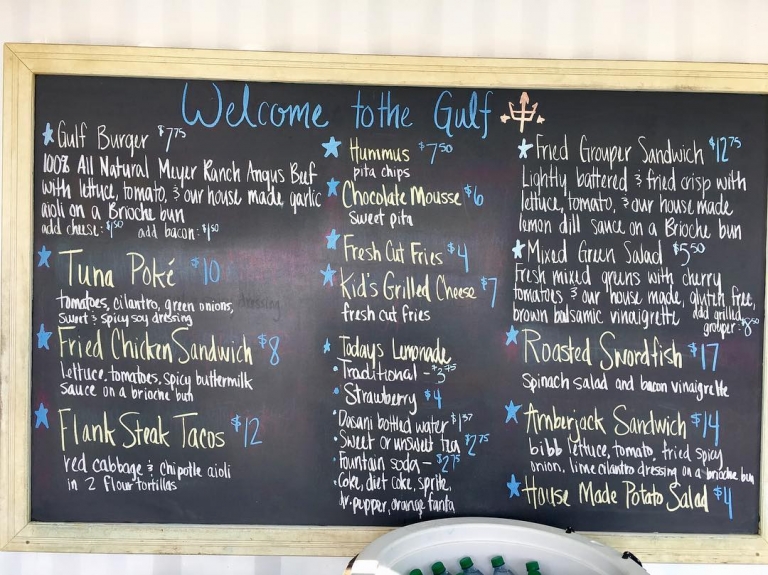 Welcome to the Gulf
Gulf Burger $7.75
100% All Natural Meyer Ranch Angus Beef
with lettuce, tomato, & our house made, garlic
aioli on a Brioche bun
add cheese: $1.50 add bacon: $1.50
Tuna Poké $10
tomatoes, cilantro, green onions, dressing
sweet & spicy soy dressing
Fried Chicken Sandwich $8
lettuce, tomatoes, spicy buttermilk
sauce on a brioche bun
Flank Steak Tacos $12
red cabbage & chipotle aioli
in 2 flour tortillas
Hummus $7.50
pita chips
Chocolate Mousse $6
Sweet pita
Fresh Cut Fries $4
Kid's Grilled Cheese $7
fresh cut fries
Todays Lemonade
• Traditional - $3.75
• Strawberry $4
• Dasani bottled water $1.37
• Sweet or unsweet tea $2.75
• Fountain soda - $2.75
• Coke, diet coke, sprite,
dr. pepper, orange fanta
Fried Grouper Sandwich $12.75
Lightly battered & fried crisp with
lettuce, tomato, & our house made
lemon dill sauce on a Brioche bun
Mixed Green Salad $5.50
Fresh mixed greens with cherry
tomatoes & our house made, gluten free,
brown balsamic vinaigrette add grilled
grouper: $8.50
Roasted Swordfish $17
spinach salad and bacon vinaigrette
Amberjack Sandwich $14
bibb lettuce, tomato, fried spicy
onion, lime cilantro dressing on a brioche bun
House Made Potato Salad $4